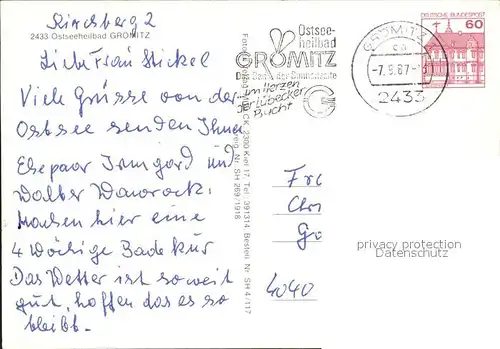 Kirchberg 2
2433 Ostseeheilbad GRÖMITZ
Liebe Frau Stickel
Viele Grüsse von der
Ostsee senden Ihnen
Ehepaar Irmgard und
Walter
Machen hier eine
4 Wöchige Badekur
Das Wetter ist so weit
gut, hoffen das es so
bleibt.
Ostsee-
heilbad
GRÖMITZ
Das Bad an der Sonnenseite
im Herzen
der Lübecker
Bucht
GRÖMITZ
-7.9.87-
2433
DEUTSCHE BUNDESPOST
60
CK, 2300 Kiel 17, Tel. 391314, Bestell. Nr. SH 4/117
Nr. SH 269/1918
Fr
Chri
Go
4040
privacy protection
Datenschutz